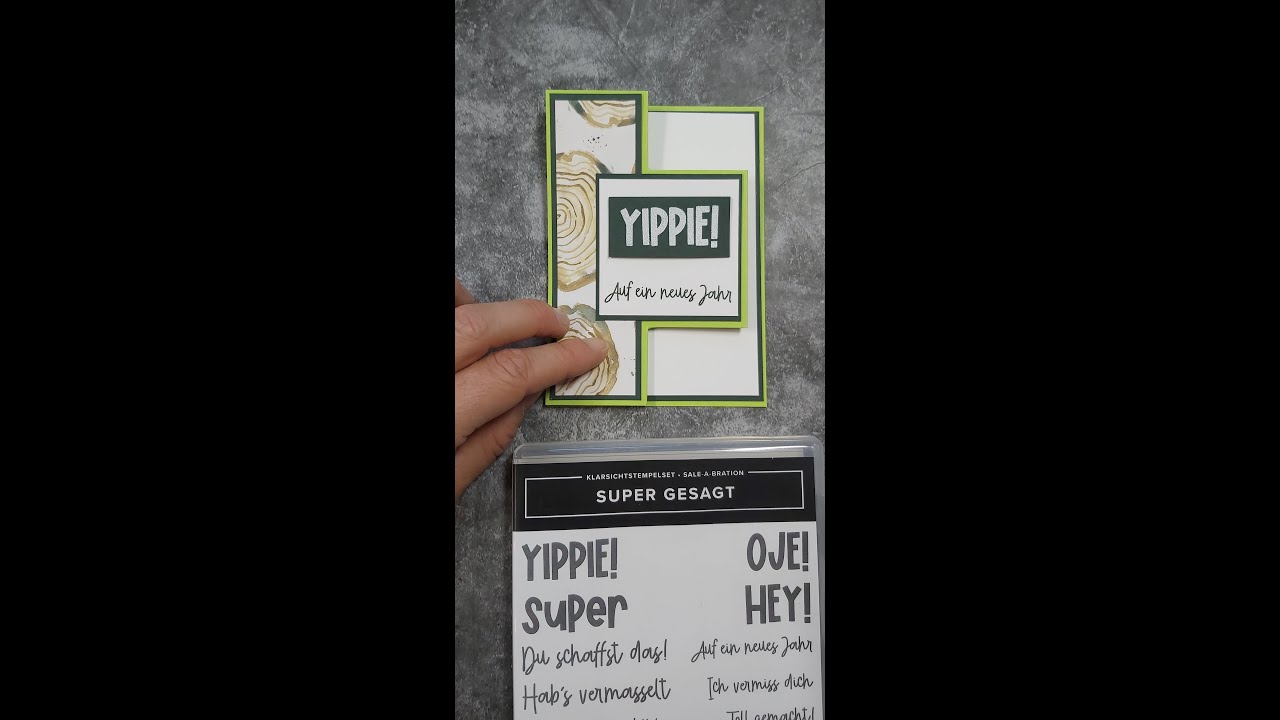 YIPPIE!
Auf ein neues Jahr
KLARSICHTSTEMPELSET • SALE-A-BRATION
SUPER GESAGT
YIPPIE!
OJE!
super
HEY!
Du schaffst das!
Auf ein neues Jahr
Hab's vermasselt
Ich vermiss dich
Toll gemacht!